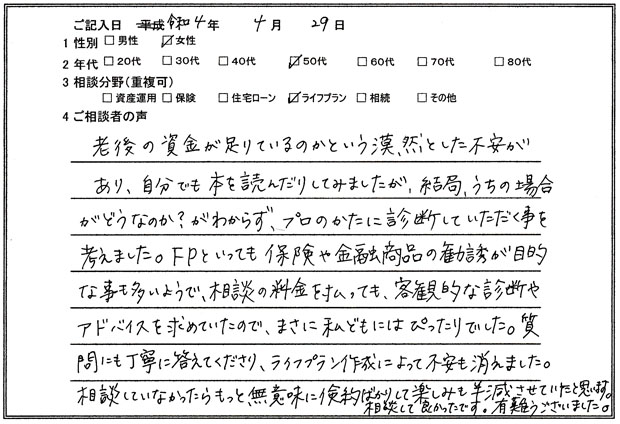 ご記入日 平成 令和 4 年 4 月 29 日
1 性別 □ 男性 ☑ 女性
2 年代 □ 20代 □ 30代 □ 40代 ☑ 50代 □ 60代 □ 70代 □ 80代
3 相談分野(重複可)
□ 資産運用 □ 保険 □ 住宅ローン ☑ ライフプラン □ 相続 □ その他
4 ご相談者の声
老後の資金が足りているのかという漠然とした不安が
あり、自分でも本を読んだりしてみましたが、結局、うちの場合
がどうなのか?がわからず、プロのかたに診断していただく事を
考えました。FPといっても保険や金融商品の勧誘が目的
な事も多いようで、相談の料金を払っても、客観的な診断や
アドバイスを求めていたので、まさに私どもにはぴったりでした。質
問にも丁寧に答えてくださり、ライフプラン作成によって不安も消えました。
相談していなかったらもっと無意味に倹約ばかりして楽しみも半減させていたと思います。
相談して良かったです。有難うございました。